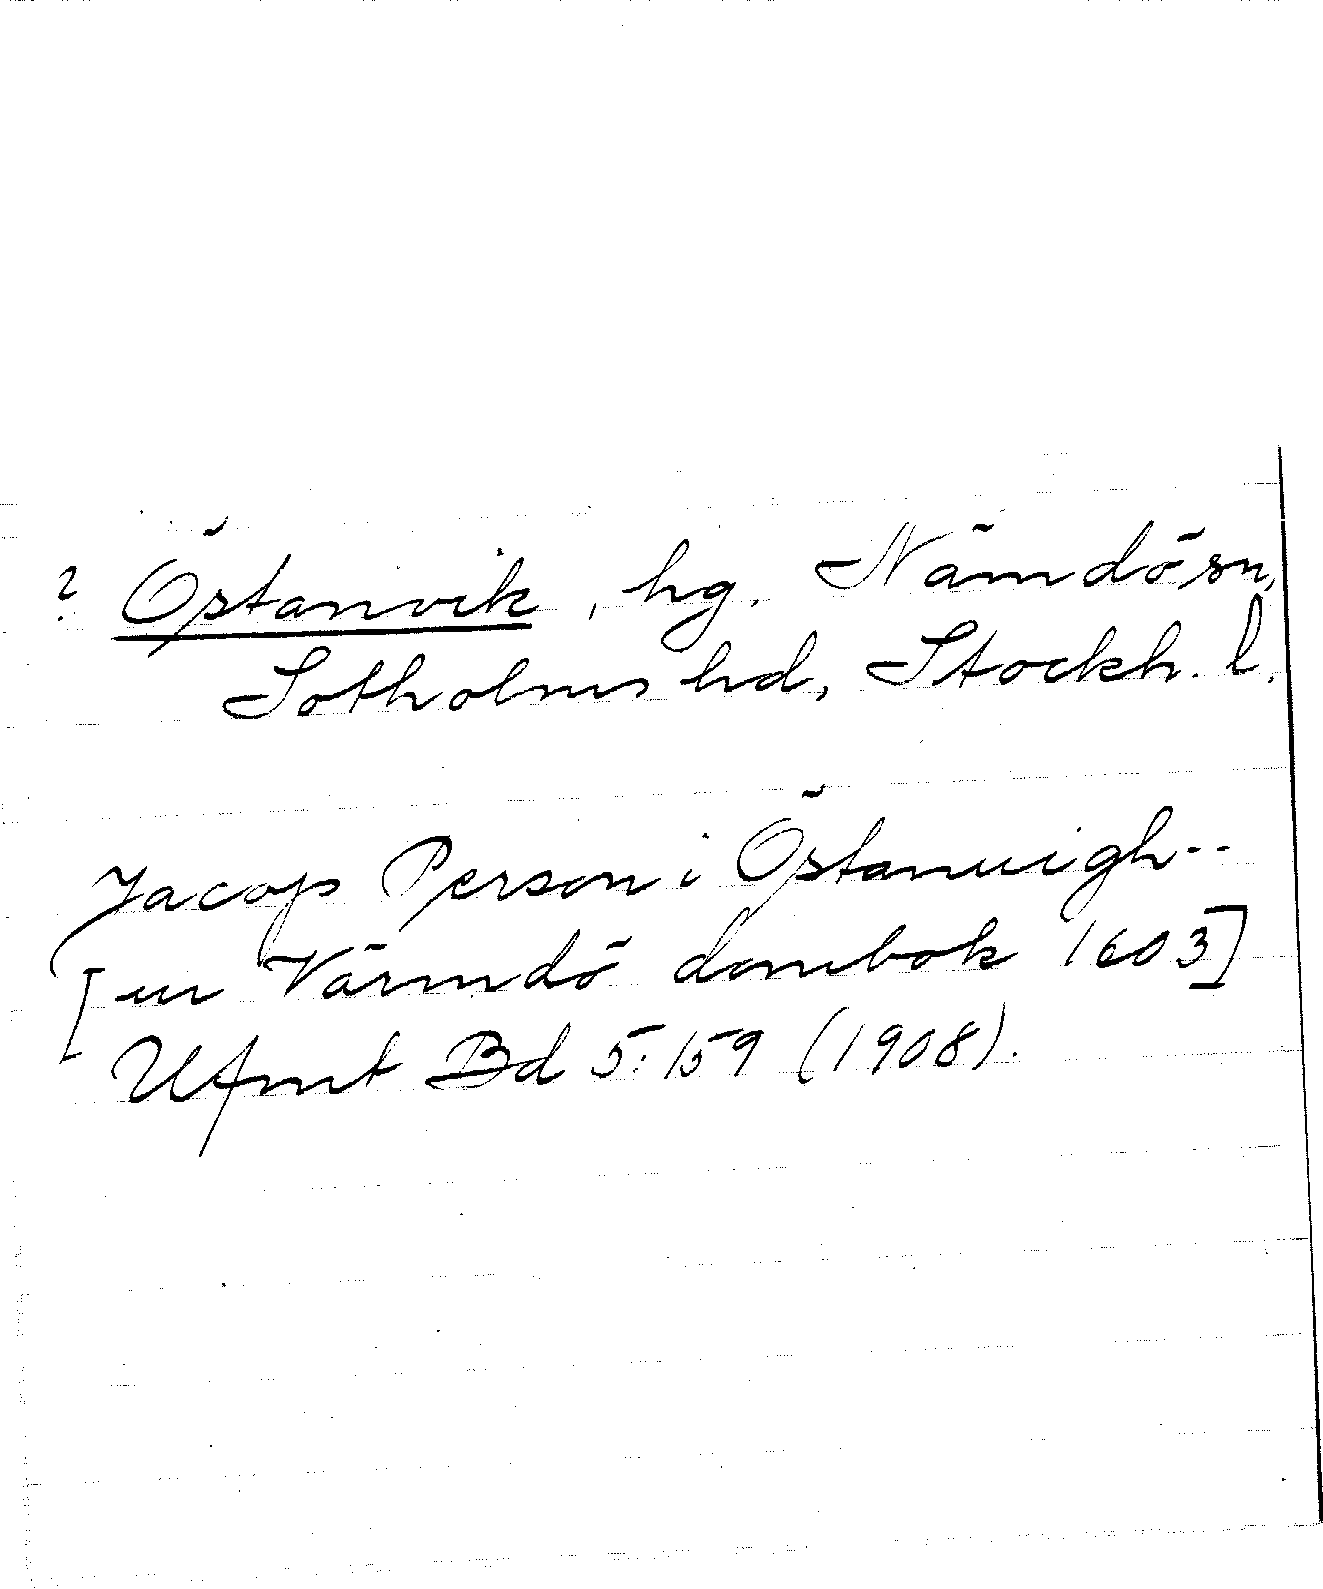 ? Östanvik, hg. Nämdö sn,
Sotholms hd, Stockh. l.
Jacop Person i Östanuigh--
[ur Värmdö dombok 1603]
Ufmt Bd 5:159 (1908).